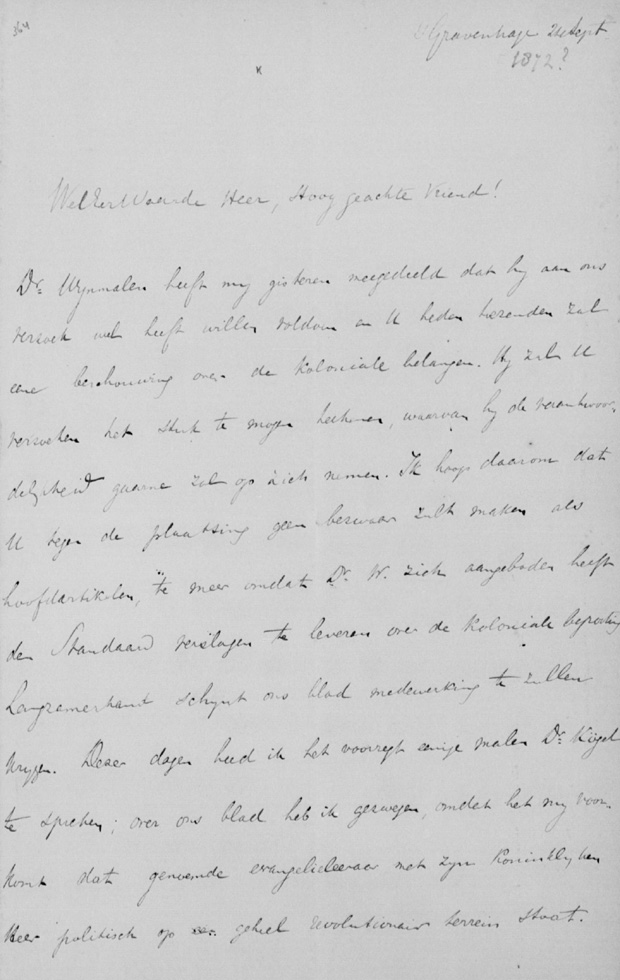 364
's Gravenhage 24 Sept
1872?
WelEerWaarde Heer, Hoog geachte Vriend!
Dr. Wynmalen heeft my gisteren meegedeeld dat hy aan ons
verzoek wel heeft willen voldoen en U heden toezenden zal
eene beschouwing over de Koloniale belangen. Hy zal U
verzoeken het stuk te mogen teekenen, waarvan hy de verantwoor-
delykheid gaarne zal op zich nemen. Ik hoop daarom dat
U tegen de plaatsing geen bezwaar zult maken als
hoofdartikelen, te meer omdat Dr. W. zich aangeboden heeft
den Standaard verslagen te leveren over de koloniale begrooting
Langzamerhand schynt ons blad medewerking te zullen
krygen. Dezer dagen had ik het voorregt eenige malen Dr. Kögel
te spreken; over ons blad heb ik gezwegen, omdat het my voor-
komt dat genoemde evangelieleeraar met zyn Koninklyken
Heer politisch op geheel revolutionair terrein staat.